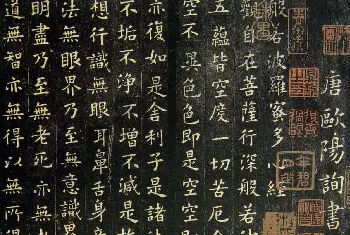 唐歐陽詢書
般若波羅蜜多心經
觀自在菩薩行深般若
五蘊皆空度一切苦厄舍
空不異色色即是空空
亦復如是舍利子是諸法
不垢不淨不增不減是故
想行識無眼耳鼻舌身
法無眼界乃至無意識界
明盡乃至無老死亦無
道無智亦無得以無所得